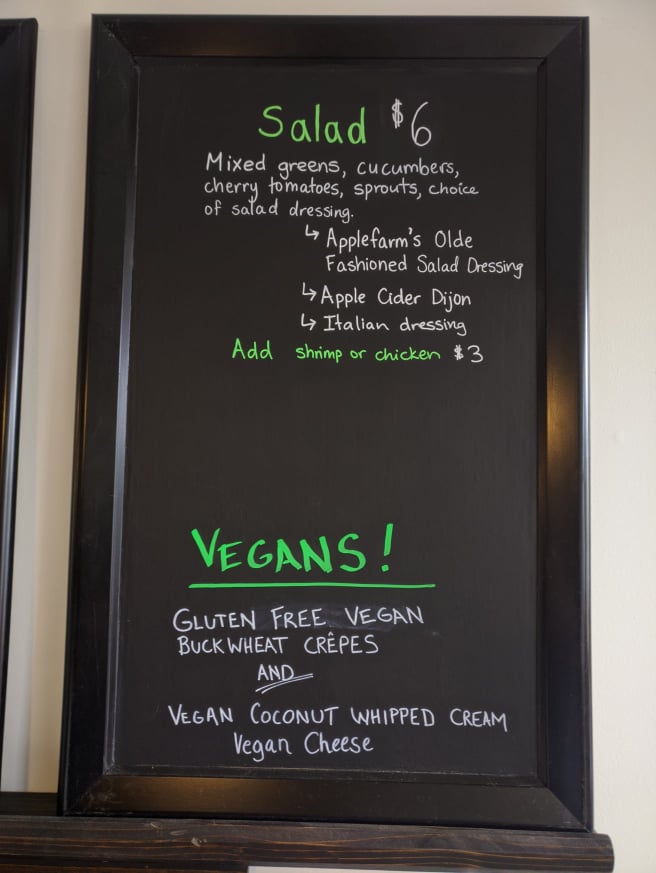 Salad $6
Mixed greens, cucumbers,
cherry tomatoes, sprouts, choice
of salad dressing.
↳ Applefarm's Olde
Fashioned Salad Dressing
↳ Apple Cider Dijon
↳ Italian dressing
Add shrimp or chicken $3
VEGANS!
GLUTEN FREE VEGAN
BUCKWHEAT CRÊPES
AND
VEGAN COCONUT WHIPPED CREAM
Vegan Cheese